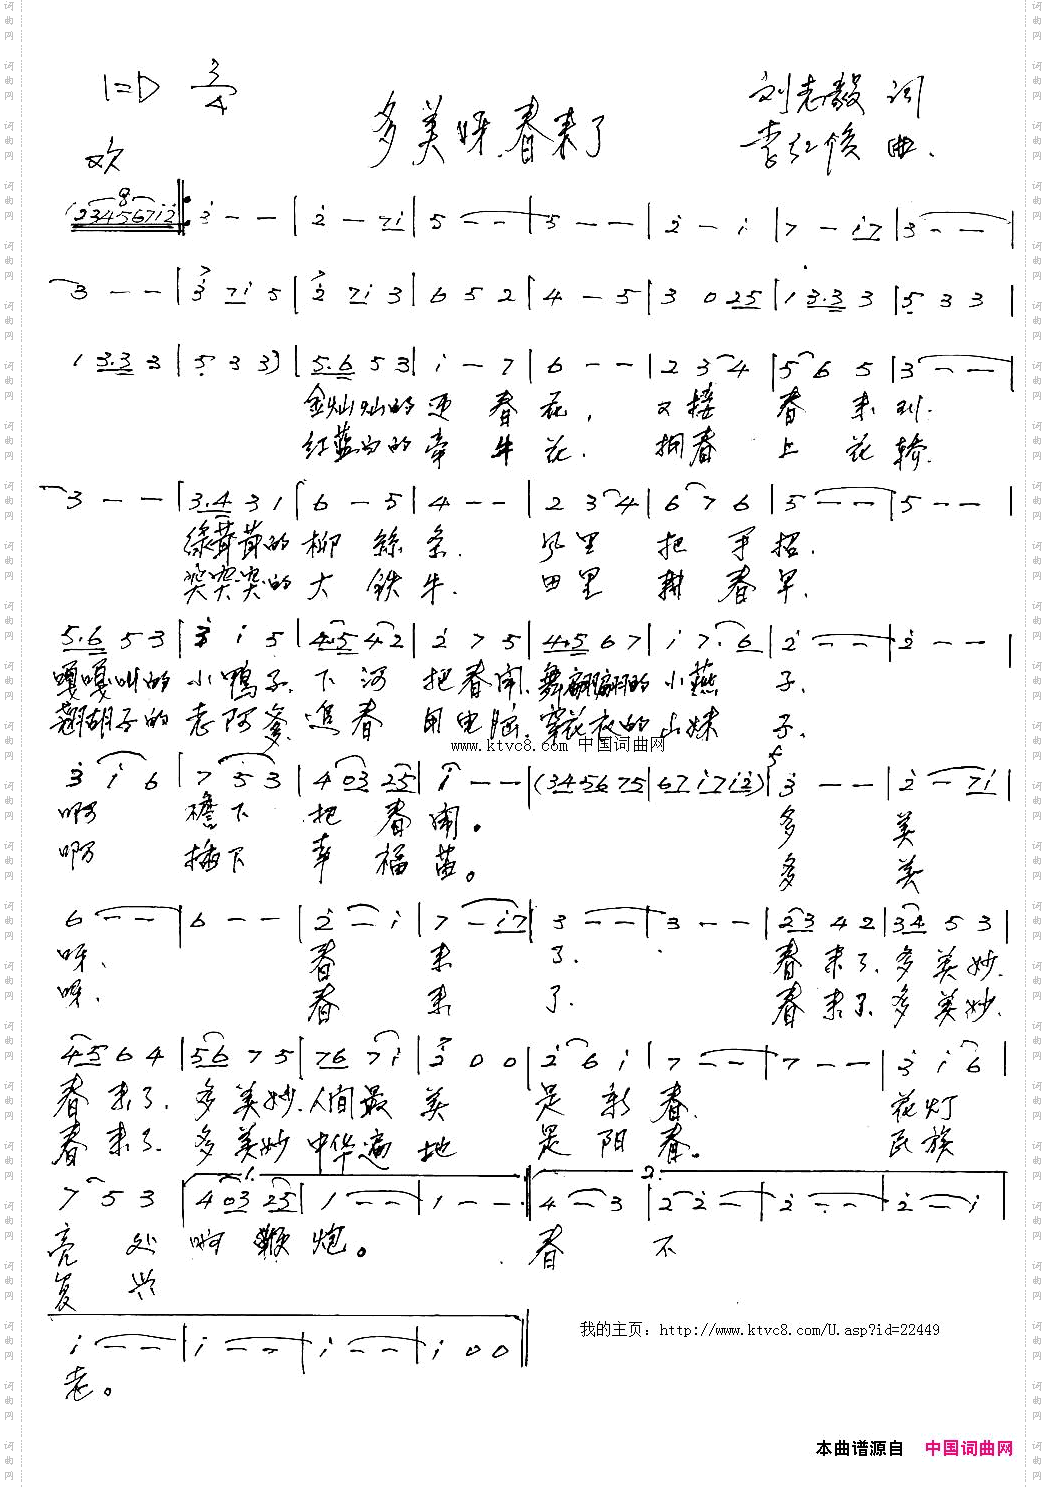 1=D 3/4
多美呀,春来了
刘志毅 词
李红俊 曲.
欢
(2345671̇2̇ 8
3̇ - - | 2̇ - 7i | 5 - - | 5 - - | 2̇ - i | 7 - i7 | 3 - - |
3 - - | 3̇ 7i 5 | 2̇ 7i 3 | 6 5 2 | 4 - 5 | 3 0 25 | 1 3.3 3 | 5 3 3 |
1 3.3 3 | 5 3 3) | 5.6 5 3 | i - 7 | 6 - - | 2 3 4 | 5 6 5 | 3 - - |
金灿灿的迎春花, 又接春来到.
红蓝白的牵牛花. 拥春上花轿.
3 - - | 3.4 3 1 | 6 - 5 | 4 - - | 2 3 4 | 6 7 6 | 5 - - | 5 - - |
绿茸茸的柳丝条. 风里把手招.
突突突的大铁牛. 田里耕春早.
5.6 5 3 | 3̇ i 5 | 4.5 4 2 | 2̇ 7 5 | 4.5 6 7 | i 7. 6 | 2̇ - - | 2̇ - - |
嘎嘎叫的小鸭子, 下河把春闹, 舞翩翩的小燕子.
翘胡子的老阿爹, 追春用电脑, 穿花衣的山妹子.
www.ktvc8.com 中国词曲网
3̇ i 6 | 7 5 3 | 4 03 25 | i - - | (345675 | 67i7i2̇) | 3̇ - - | 2̇ - 7i |
啊 檐下把春闹。 多美
啊 插下幸福苗。 多美
6 - - | 6 - - | 2̇ - i | 7 - i7 | 3 - - | 3 - - | 23 4 2 | 34 5 3 |
呀、 春来了. 春来了,多美妙.
呀、 春来了. 春来了,多美妙.
45 6 4 | 56 7 5 | 76 7 i | 2̇ 0 0 | 2̇ 6 i | 7 - - | 7 - - | 3̇ i 6 |
春来了,多美妙,人间最美是新春. 花灯
春来了,多美妙 中华遍地是阳春。 民族
7 5 3 | 1. 4 03 25 | 1 - - | 1 - - :| 2. 4 - 3 | 2 2̇ - | 2̇ - - | 2̇ - i |
亮处响鞭炮。 春不
复兴
i - - | i - - | i - - | i 0 0 ||
老。
我的主页：http://www.ktvc8.com/U.asp?id=22449
本曲谱源自 中国词曲网